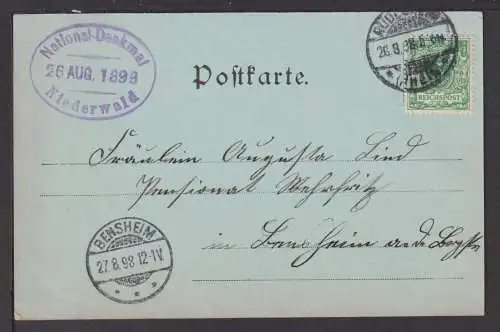 National-Denkmal
26 AUG. 1898
Niederwald
Postkarte.
26.8.98.
REICHSPOST
Fräulein Augusta Lind
Pensionat Wehrfritz
in Bensheim a. d. Bergstr.
BENSHEIM
27.8.98.12-1V.